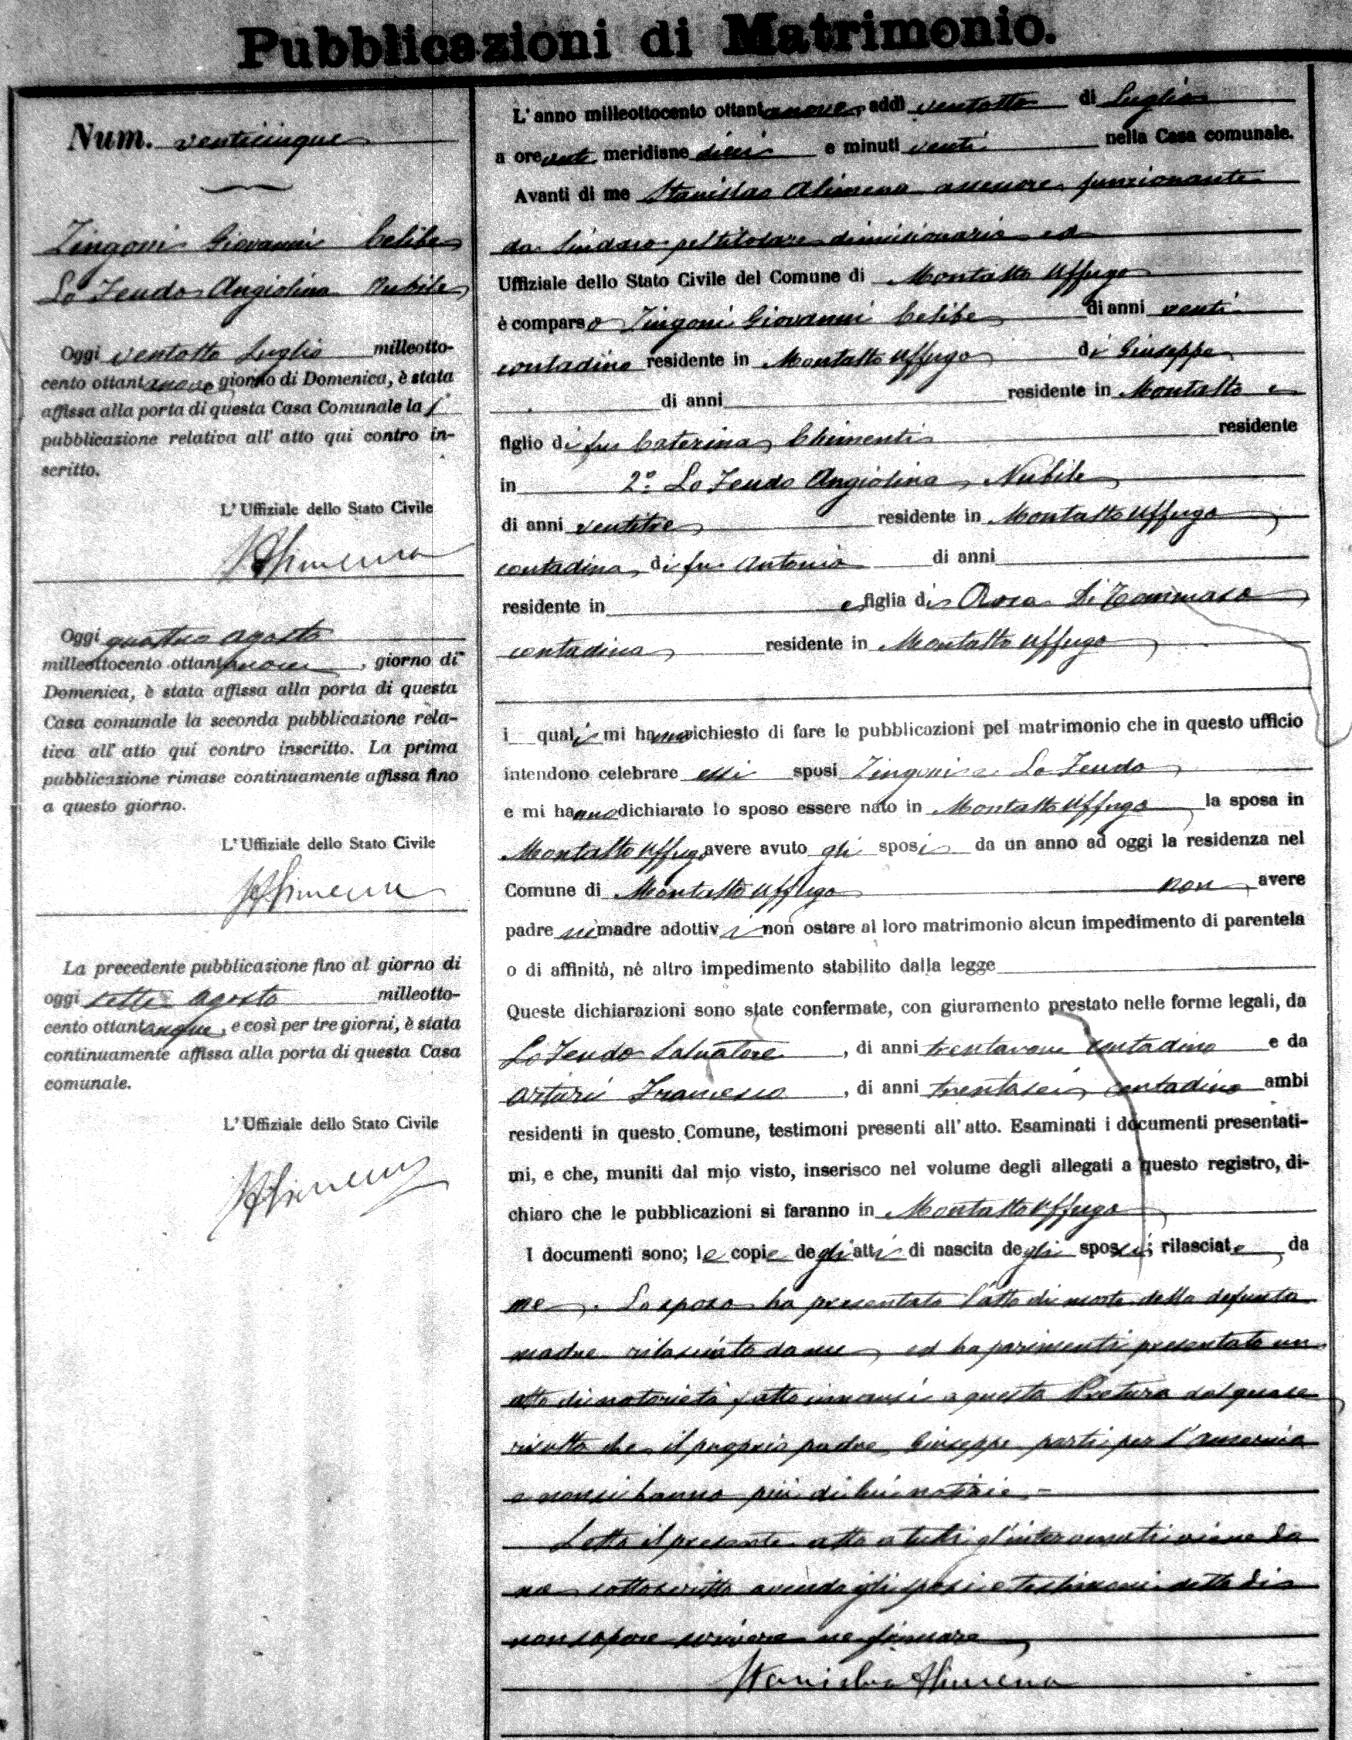 Pubblicazioni di Matrimonio.
Num. venticinque
Zingoni Giovanni Celibe
Lo Feudo Angiolina Nubile
Oggi ventotto Luglio milleotto-
cento ottantanove giorno di Domenica, è stata
affissa alla porta di questa Casa Comunale la 1ª
pubblicazione relativa all' atto qui contro in-
scritto.
L' Uffiziale dello Stato Civile
SAlimena
Oggi quattro Agosto
milleottocento ottantanove, giorno di
Domenica, è stata affissa alla porta di questa
Casa comunale la seconda pubblicazione rela-
tiva all' atto qui contro inscritto. La prima
pubblicazione rimase continuamente affissa fino
a questo giorno.
L' Uffiziale dello Stato Civile
SAlimena
La precedente pubblicazione fino al giorno di
oggi sette Agosto milleotto-
cento ottantanove, e così per tre giorni, è stata
continuamente affissa alla porta di questa Casa
comunale.
L' Uffiziale dello Stato Civile
SAlimena
L' anno milleottocento ottantanove, addì ventotto di Luglio
a ore anti meridiane dieci e minuti venti nella Casa comunale.
Avanti di me Stanislao Alimena assessore funzionante
da Sindaco pel titolare dimissionario ed
Uffiziale dello Stato Civile del Comune di Montalto Uffugo
è comparso Zingoni Giovanni Celibe di anni venti
contadino residente in Montalto Uffugo di Giuseppe
di anni residente in Montalto e
figlio di fu Caterina Chimenti residente
in 2º Lo Feudo Angiolina, Nubile
di anni ventitre residente in Montalto Uffugo
contadina, di fu Antonio di anni
residente in e figlia di Rosa Di Tommaso
contadina residente in Montalto Uffugo
i quali mi hanno richiesto di fare le pubblicazioni pel matrimonio che in questo ufficio
intendono celebrare essi sposi Zingoni e Lo Feudo
e mi hanno dichiarato lo sposo essere nato in Montalto Uffugo la sposa in
Montalto Uffugo avere avuto gli sposi da un anno ad oggi la residenza nel
Comune di Montalto Uffugo non avere
padre nè madre adottivi non ostare al loro matrimonio alcun impedimento di parentela
o di affinità, nè altro impedimento stabilito dalla legge
Queste dichiarazioni sono state confermate, con giuramento prestato nelle forme legali, da
Lo Feudo Salvatore, di anni trentanove contadino e da
Arturi Francesco, di anni trentasei, contadino ambi
residenti in questo Comune, testimoni presenti all' atto. Esaminati i documenti presentati-
mi, e che, muniti dal mio visto, inserisco nel volume degli allegati a questo registro, di-
chiaro che le pubblicazioni si faranno in Montalto Uffugo
I documenti sono; le copie degli atti di nascita degli sposi; rilasciate da
me. Lo sposo ha presentato l'atto di morte della defunta
madre rilasciato da me, ed ha parimenti presentato un
atto di notorietà fatto innanzi a questa Pretura dal quale
risulta che il proprio padre Giuseppe partì per l'America
e non si hanno più di lui notizie. -
Letto il presente atto a tutti gl'intervenuti viene da
me sottoscritto avendo gli sposi e testimoni detto di
non sapere scrivere ne firmare
Stanislao Alimena